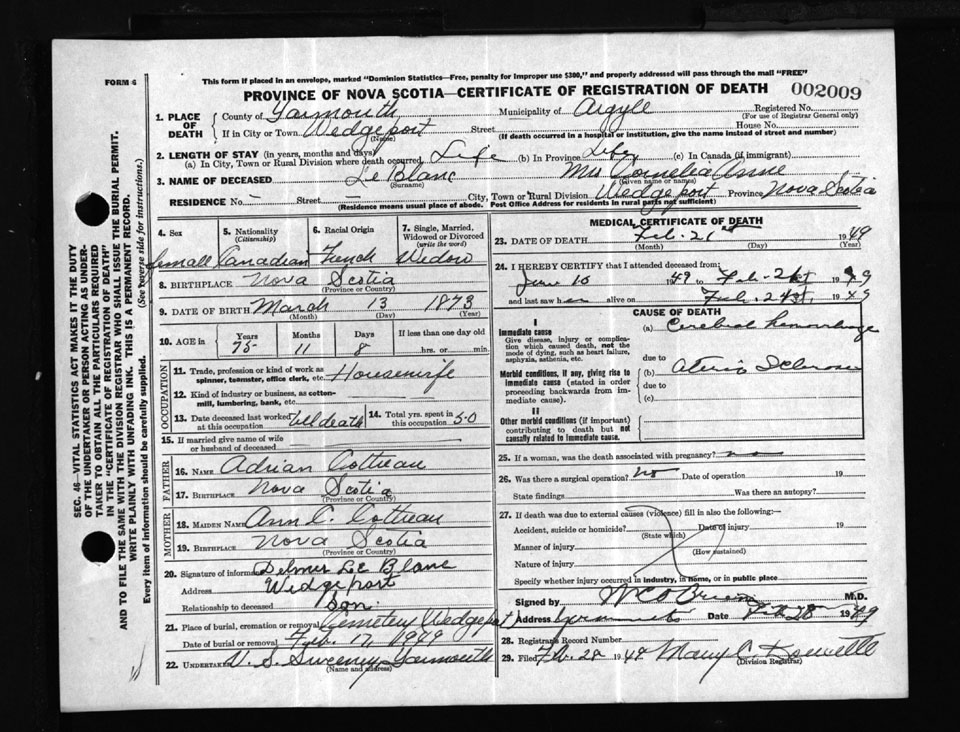 FORM 6
This form if placed in an envelope, marked "Dominion Statistics—Free, penalty for improper use $300," and properly addressed will pass through the mail "FREE"
PROVINCE OF NOVA SCOTIA—CERTIFICATE OF REGISTRATION OF DEATH 002009
1. PLACE OF DEATH { County of Yarmouth Municipality of Argyll Registered No.
(For use of Registrar General only)
If in City or Town Wedgeport Street House No.
(Name) (If death occurred in a hospital or institution, give the name instead of street and number)
2. LENGTH OF STAY (in years, months and days)
(a) In City, Town or Rural Division where death occurred Life (b) In Province Life (c) In Canada (if immigrant)
3. NAME OF DECEASED Le Blanc Mrs Cornelia Anne
(Surname) (Given name or names)
RESIDENCE No. - Street City, Town or Rural Division Wedgeport Province Nova Scotia
(Residence means usual place of abode. Post Office Address for residents in rural parts not sufficient)
4. Sex 5. Nationality (Citizenship) 6. Racial Origin 7. Single, Married, Widowed or Divorced (write the word)
female Canadian French Widow
8. BIRTHPLACE Nova Scotia
(Province or Country)
9. DATE OF BIRTH March 13 1873
(Month) (Day) (Year)
10. AGE in { Years Months Days If less than one day old
75 11 8 hrs. or min.
OCCUPATION
11. Trade, profession or kind of work as spinner, teamster, office clerk, etc. Housewife
12. Kind of industry or business, as cotton-mill, lumbering, bank, etc.
13. Date deceased last worked at this occupation till death 14. Total yrs. spent in this occupation 50
15. If married give name of wife or husband of deceased
FATHER
16. NAME Adrian Cottreau
17. BIRTHPLACE Nova Scotia
(Province or Country)
MOTHER
18. MAIDEN NAME Ann C. Cottreau
19. BIRTHPLACE Nova Scotia
(Province or Country)
20. Signature of informant Delmer Le Blanc
Address Wedgeport
Relationship to deceased Son.
21. Place of burial, cremation or removal Cemetery Wedgeport
Date of burial or removal Feb. 1949
22. UNDERTAKER V. S. Sweeney Yarmouth
(Name and address)
MEDICAL CERTIFICATE OF DEATH
23. DATE OF DEATH Feb. 21 1949
(Month) (Day) (Year)
24. I HEREBY CERTIFY that I attended deceased from:
June 1949 to Feb. 21st 1949
and last saw her alive on Feb. 1949
CAUSE OF DEATH
I
Immediate cause
Give disease, injury or complication which caused death, not the mode of dying, such as heart failure, asphyxia, asthenia, etc.
(a) Cerebral hemorrhage
due to
Morbid conditions, if any, giving rise to immediate cause (stated in order proceeding backwards from immediate cause).
(b) Sclerosis
due to
(c)
II
Other morbid conditions (if important) contributing to death but not causally related to immediate cause.
25. If a woman, was the death associated with pregnancy? no
26. Was there a surgical operation? no Date of operation 19
State findings Was there an autopsy?
27. If death was due to external causes (violence) fill in also the following:—
Accident, suicide or homicide? Date of injury 19
(State which)
Manner of injury
(How sustained)
Nature of injury
Specify whether injury occurred in industry, in home, or in public place
Signed by M.D.
Address Date Feb 28 1949
28. Registrar's Record Number
29. Filed Feb. 28 1949 Mary C.
(Division Registrar)
SEC. 46—VITAL STATISTICS ACT MAKES IT THE DUTY OF THE UNDERTAKER OR PERSON ACTING AS UNDERTAKER TO OBTAIN ALL THE PARTICULARS REQUIRED IN THE "CERTIFICATE OF REGISTRATION OF DEATH" AND TO FILE THE SAME WITH THE DIVISION REGISTRAR WHO SHALL ISSUE THE BURIAL PERMIT.
WRITE PLAINLY WITH UNFADING INK. THIS IS A PERMANENT RECORD.
Every item of information should be carefully supplied. (See reverse side for instructions.)